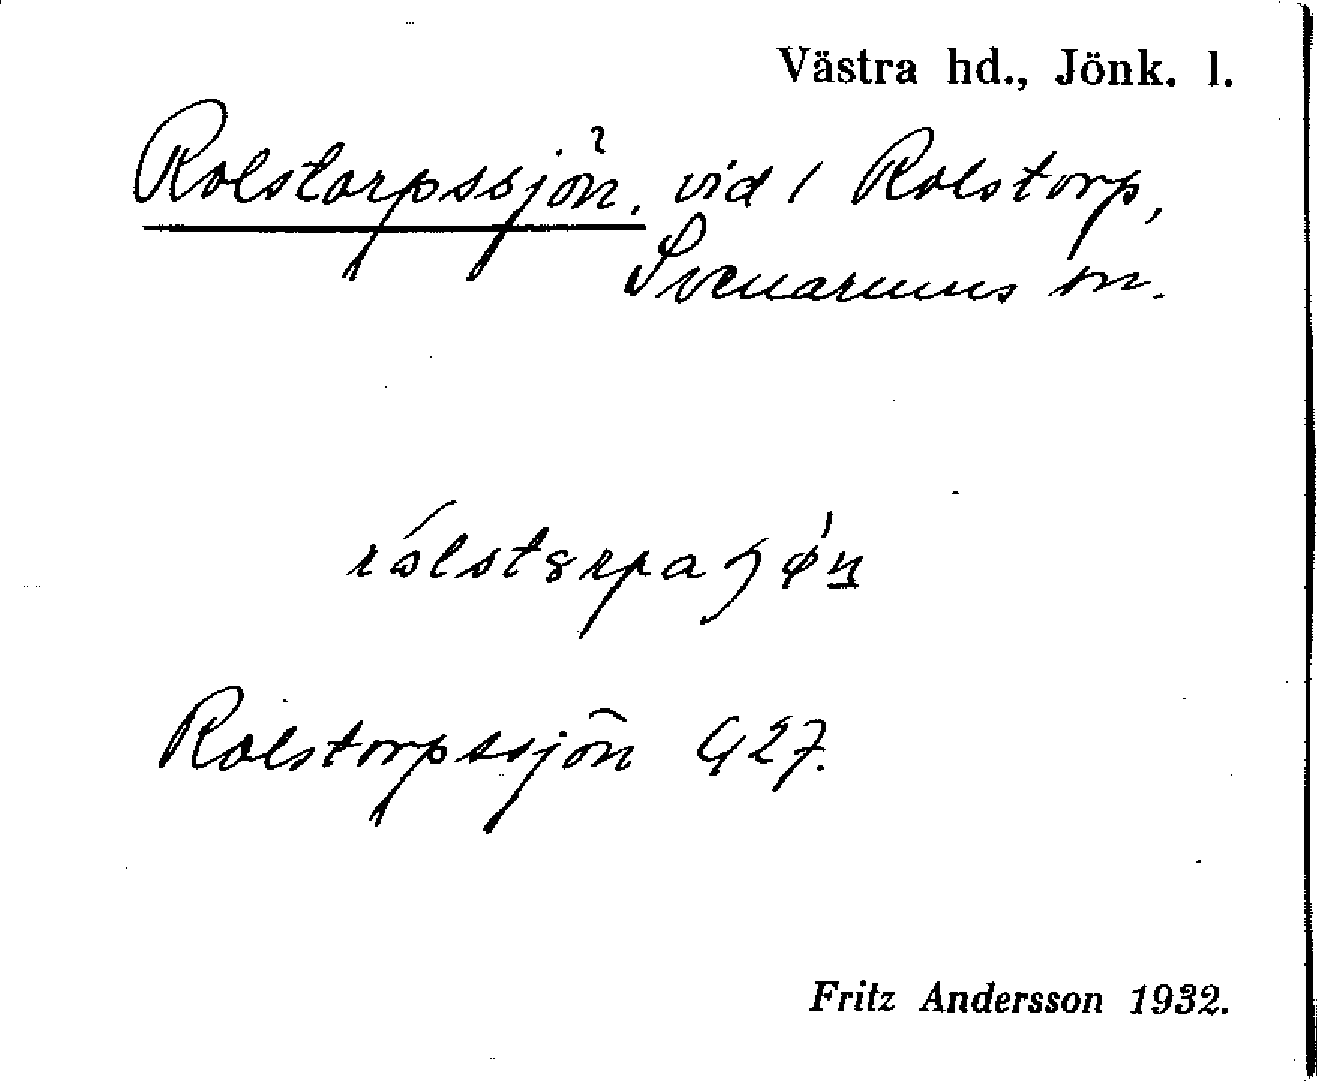 Västra hd., Jönk. l.
Rolstorpssjön, vid 1 Rolstorp,
Svenarums sn.
Rolstorpssjön G 27.
Fritz Andersson 1932.